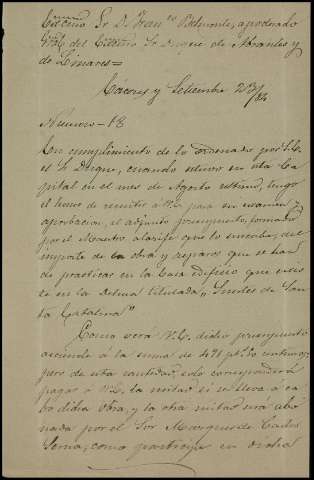 Excmo Sr. D. Franco Belmonte, apoderado
Gral del Excmo Sr Duque de Abrantes y
de Linares=
Cáceres y Setiembre 23/84
Numero-18
En cumplimiento de lo ordenado por S.E.
el Sr Duque, cuando estuvo en esta Ca-
pital en el mes de Agosto último, tengo
el honor de remitir á V.E. para su examen y
aprobacion, el adjunto presupuesto, formado
por el Maestro alarife que lo suscribe, del
importe de la obra y reparos que se han
de practicar en la Casa edificio que exis-
te en la Dehesa titulada, de San-
ta Catalina"
Como verá V.E. dicho presupuesto
asciende á la suma de 471 ptas 50 centimos;
pero de esta cantidad, solo corresponderá
pagar á V.E. la mitad si se lleva á ca-
bo dicha obra, y la otra mitad será abo-
nada por el Sor Marques de Castro
Serna, como participe en dicha